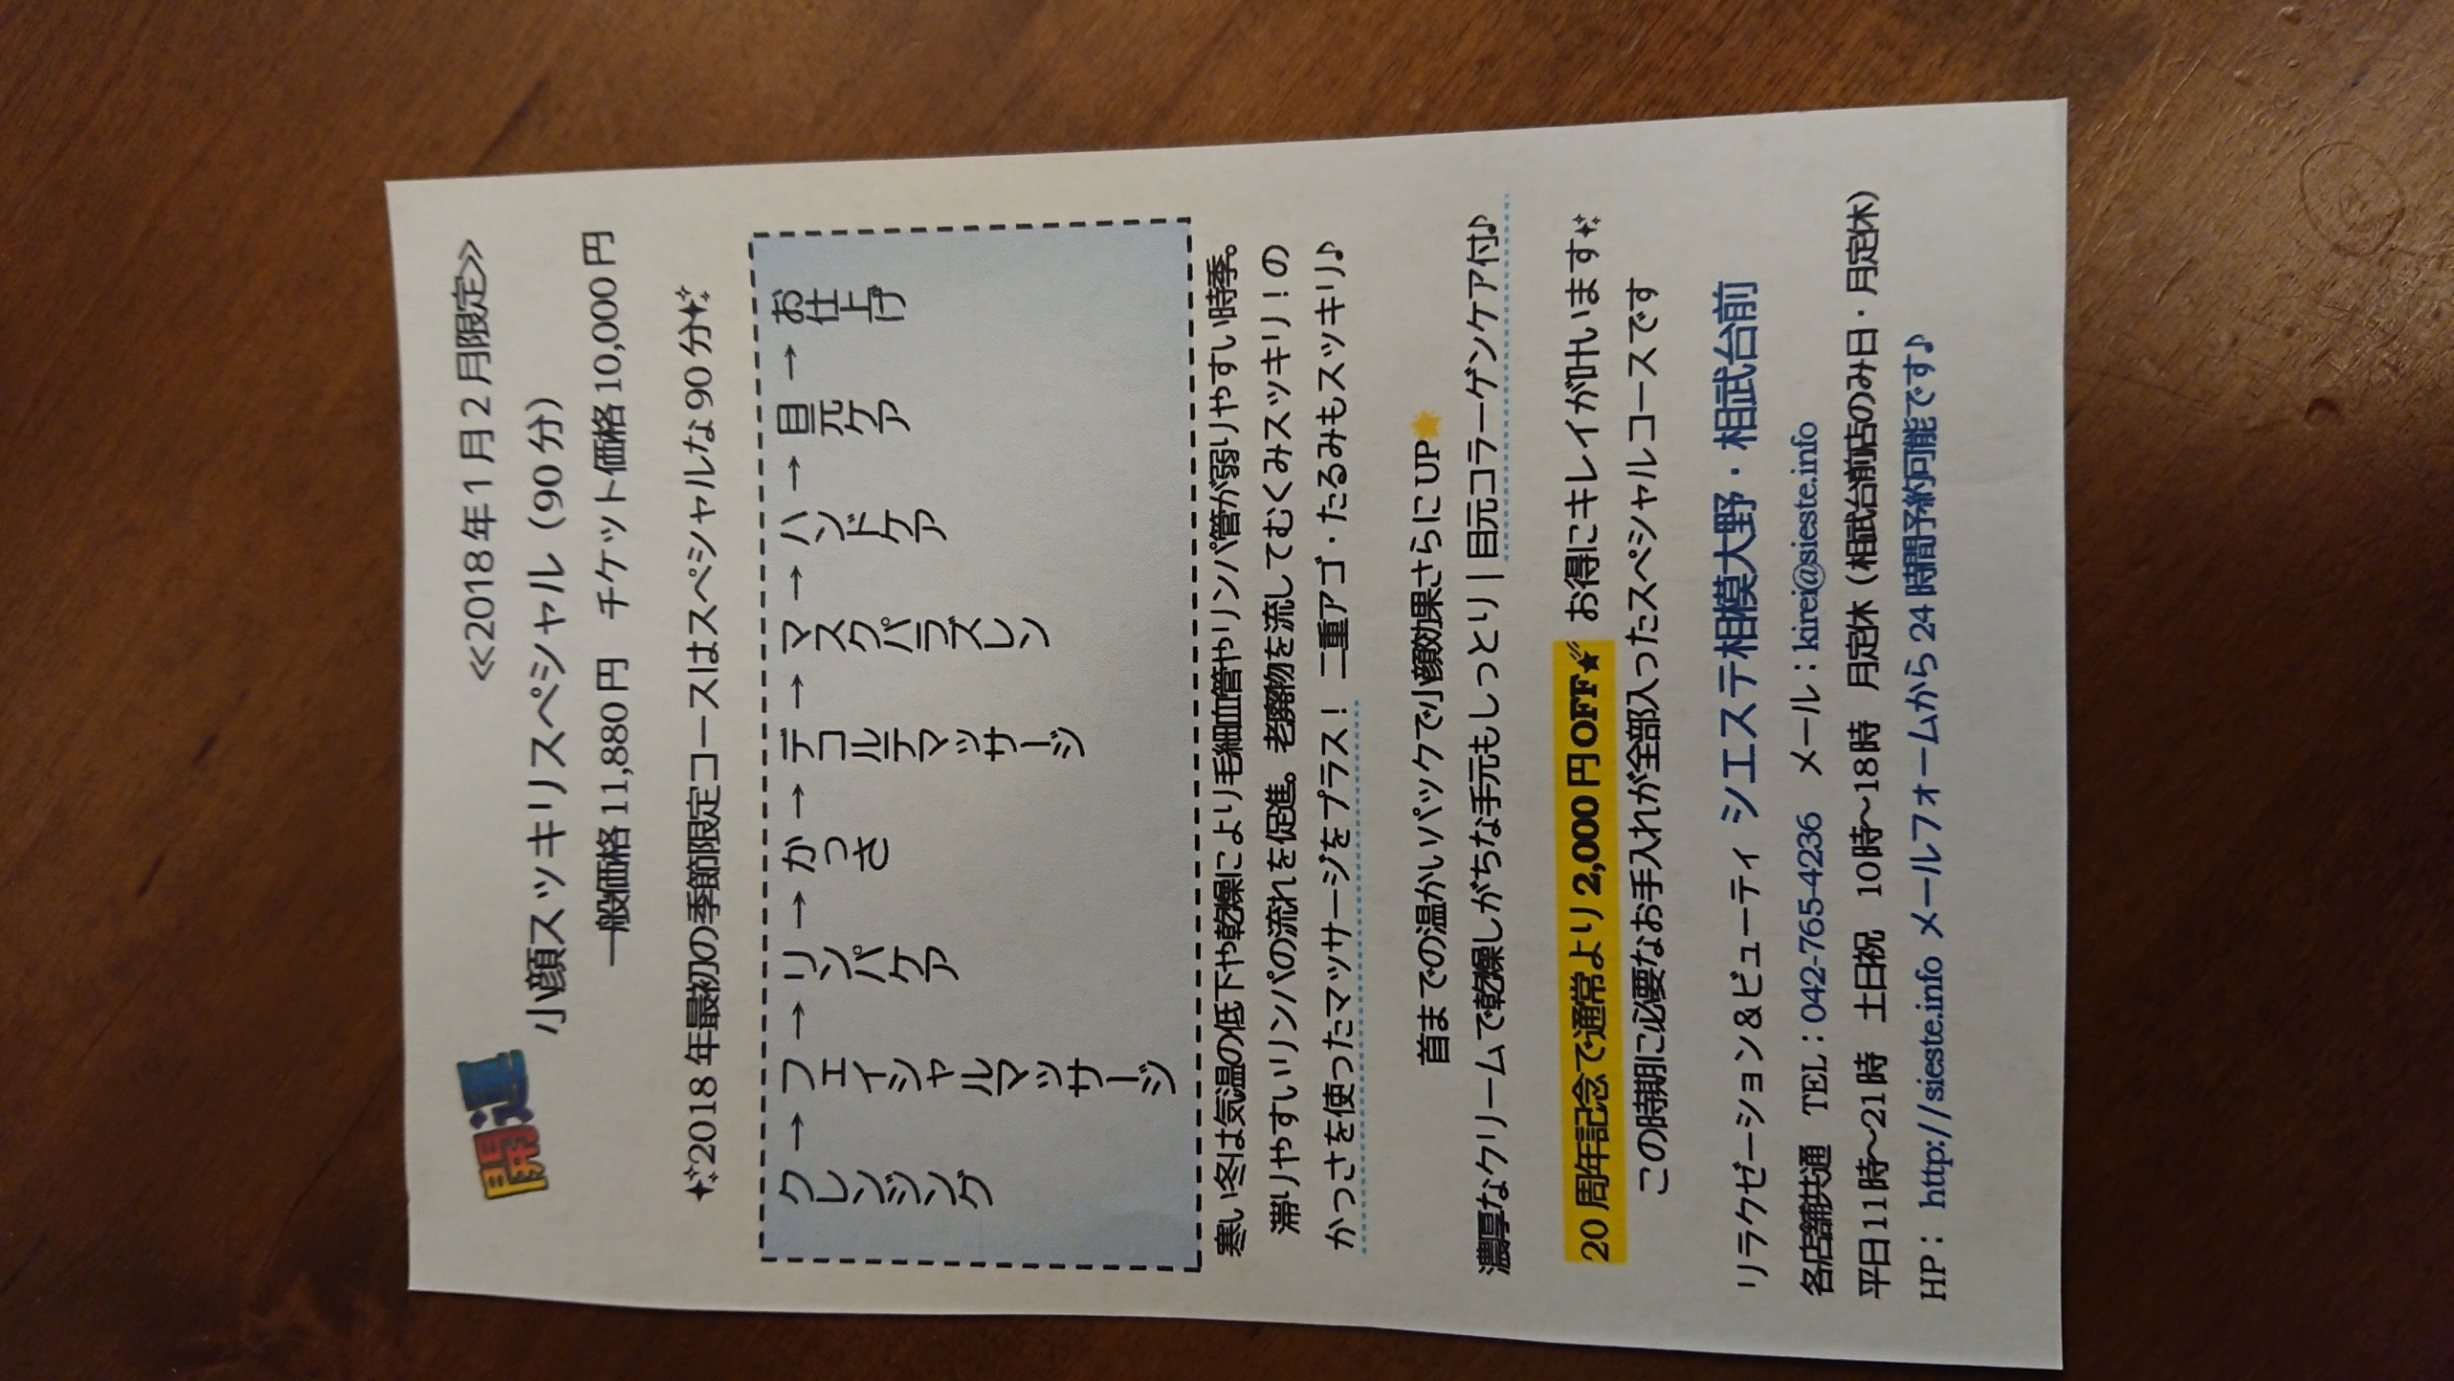 ≪2018年1月2月限定≫
開運
小顔スッキリスペシャル（90分）
一般価格11,880円　チケット価格10,000円
2018年最初の季節限定コースはスペシャルな90分
クレンジング→フェイシャルマッサージ→リンパケア→かっさ→デコルテマッサージ→マスクパラズレン→ハンドケア→目元ケア→お仕上げ
寒い冬は気温の低下や乾燥により毛細血管やリンパ管が弱りやすい時季。
滞りやすいリンパの流れを促進。老廃物を流してむくみスッキリ！の
かっさを使ったマッサージをプラス！ 二重アゴ・たるみもスッキリ♪
首までの温かいパックで小顔効果さらにUP★
濃厚なクリームで乾燥しがちな手元もしっとり｜目元コラーゲンケア付♪
20周年記念で通常より2,000円OFF★ お得にキレイが叶います
この時期に必要なお手入れが全部入ったスペシャルコースです
リラクゼーション&ビューティ シエステ相模大野・相武台前
各店舗共通　TEL：042-765-4236　メール：kirei@sieste.info
平日11時～21時　土日祝　10時～18時　月定休（相武台前店のみ日・月定休）
HP： http://sieste.info メールフォームから24時間予約可能です♪